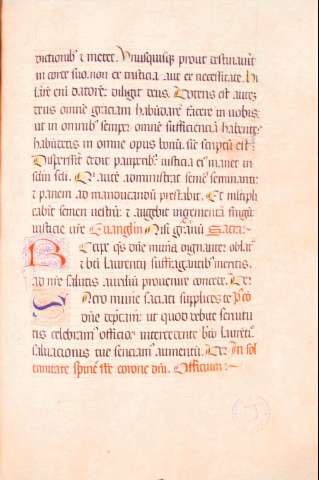 dictionib⁹ ⁊ metet. Vnusquisq₃ prout destinauit
in corde suo. non ex tristicia aut ex necessitate. Hi
larē enī datorē diligit deus. Potens est autez
deus omnē graciam habūdare facere in uobis
ut in omnib⁹ semper omnē sufficienciā habentes
habūdetis in omne opus bonū. sic scriptū est.
Dispersit dedit pauperib⁹ iusticia ei⁹ manet in
sclm scli. Qi autē administrat semē seminanti
⁊ panem ad manducandū prestabit. Et multipli
cabit semen uestrū. ⁊ augebit incrementa frugū
iusticie ure Euangliū Nisi granū Sacra
Accipe q̄s dn̄e munera dignanter oblata
⁊ bt̄i laurentii suffragantib⁹ meritis.
ad nr̄e salutis auxiliū prouenire concede. Per
Sacro munere saciati supplices te Pꝰco
dn̄e dep̄cam̄. ut quod debite seruitu
tis celebram⁹ officio. intercedente bt̄o laurētio
saluacionis tue senciam⁹ aumentū. Per In sol
emnitate spinee ste corone dn̄i. Officium